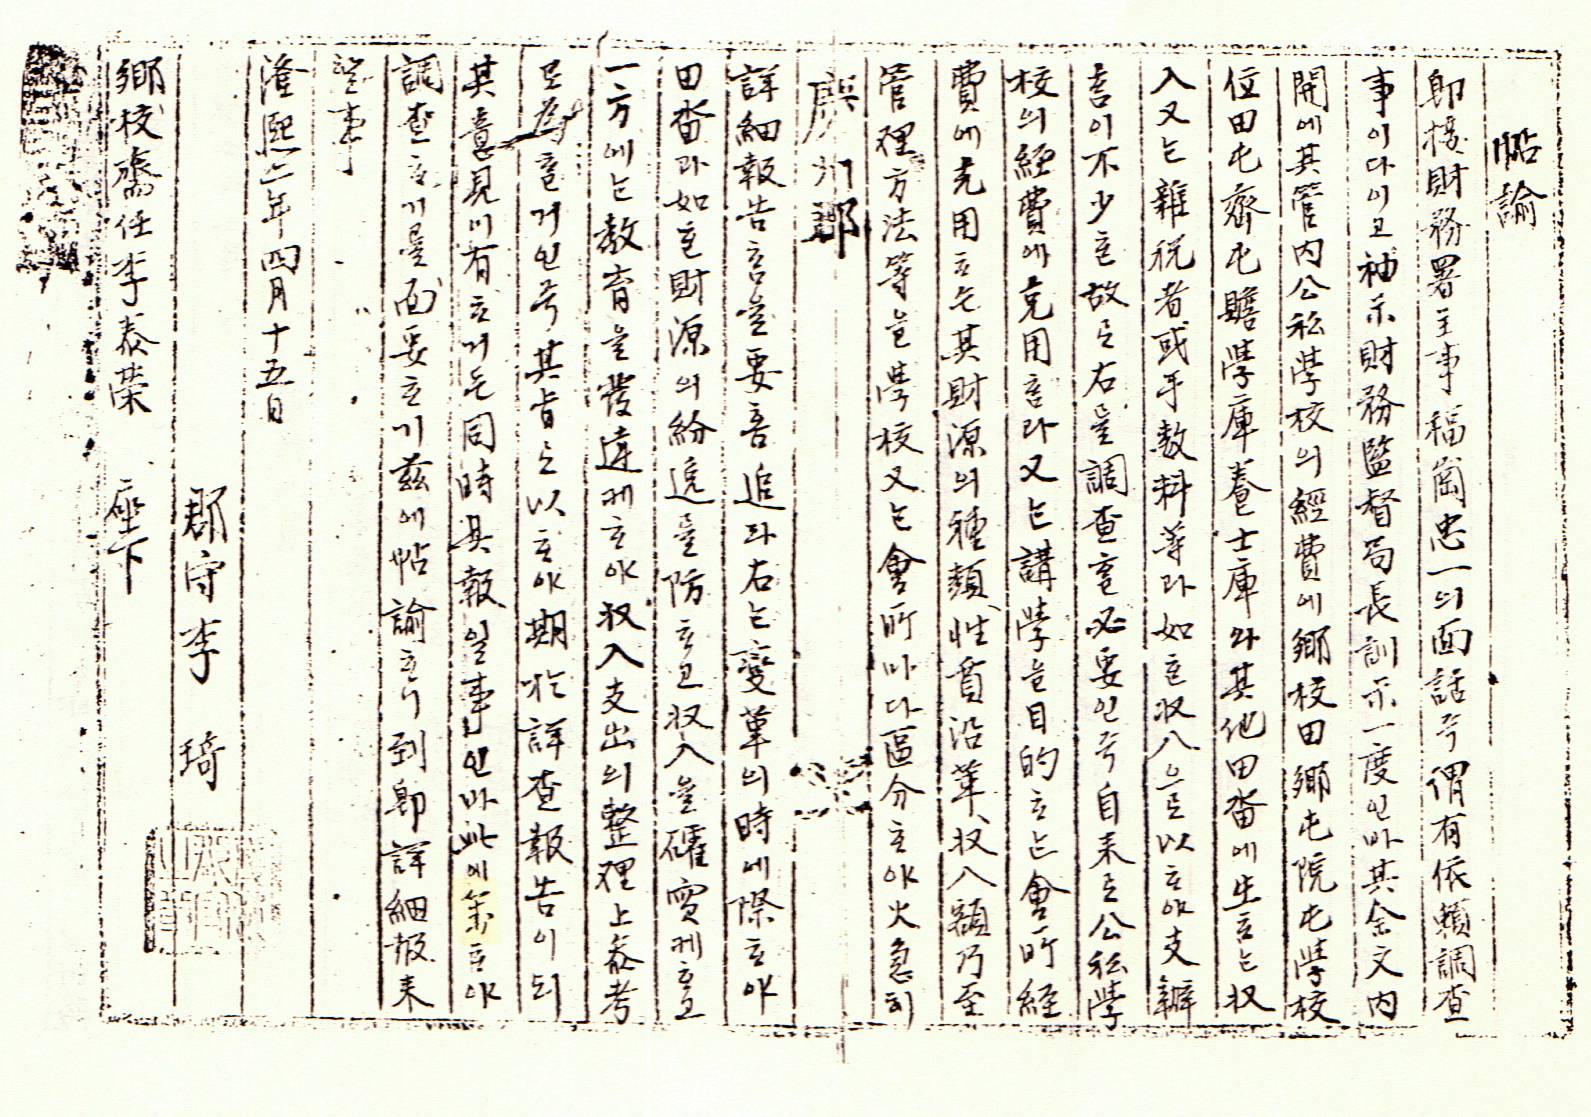 帖諭
卽接財務署主事福崗忠一의面話즉謂有依賴調査
事이다이고袖示財務監督局長訓示一度인바其全文內
開에其管內公私學校의經費에鄕校田鄕屯院屯學校
位田屯齋屯贍學庫養士庫와其他田畓에生ᄒᆞᄂᆞᆫ収
入又ᄂᆞᆫ雜稅者或手數料等과如ᄒᆞᆫ収入으로以ᄒᆞ야支辦
홈이不少ᄒᆞᆫ故로右ᄅᆞᆯ調査ᄒᆞᆯ必要인즉自來로公私學
校의經費에充用홈과又ᄂᆞᆫ講學을目的ᄒᆞᄂᆞᆫ會所経
費에充用ᄒᆞᄂᆞᆫ其財源의種類、性質沿革、収入額乃至
管理方法等을學校又ᄂᆞᆫ會所마다區分ᄒᆞ야火急히
廣州郡
詳細報告홈을要홈追다右ᄂᆞᆫ變革의時에際ᄒᆞ야
田畓과如ᄒᆞᆫ財源의紛逸을防ᄒᆞ고収入을確實케ᄒᆞ고
一方에ᄂᆞᆫ敎育을發達케ᄒᆞ야収入支出의整理上參考
로爲ᄒᆞᆯ거인즉其旨로以ᄒᆞ야期於詳査報告이되
其意見이有ᄒᆞ거든同時其報일事인바此에筭ᄒᆞ야
調査ᄒᆞ기로面要ᄒᆞ기玆에帖諭ᄒᆞ니到卽詳細報來
望事
隆熙二年四月十五日
郡守李 琦
鄕校齋任李泰榮 座下